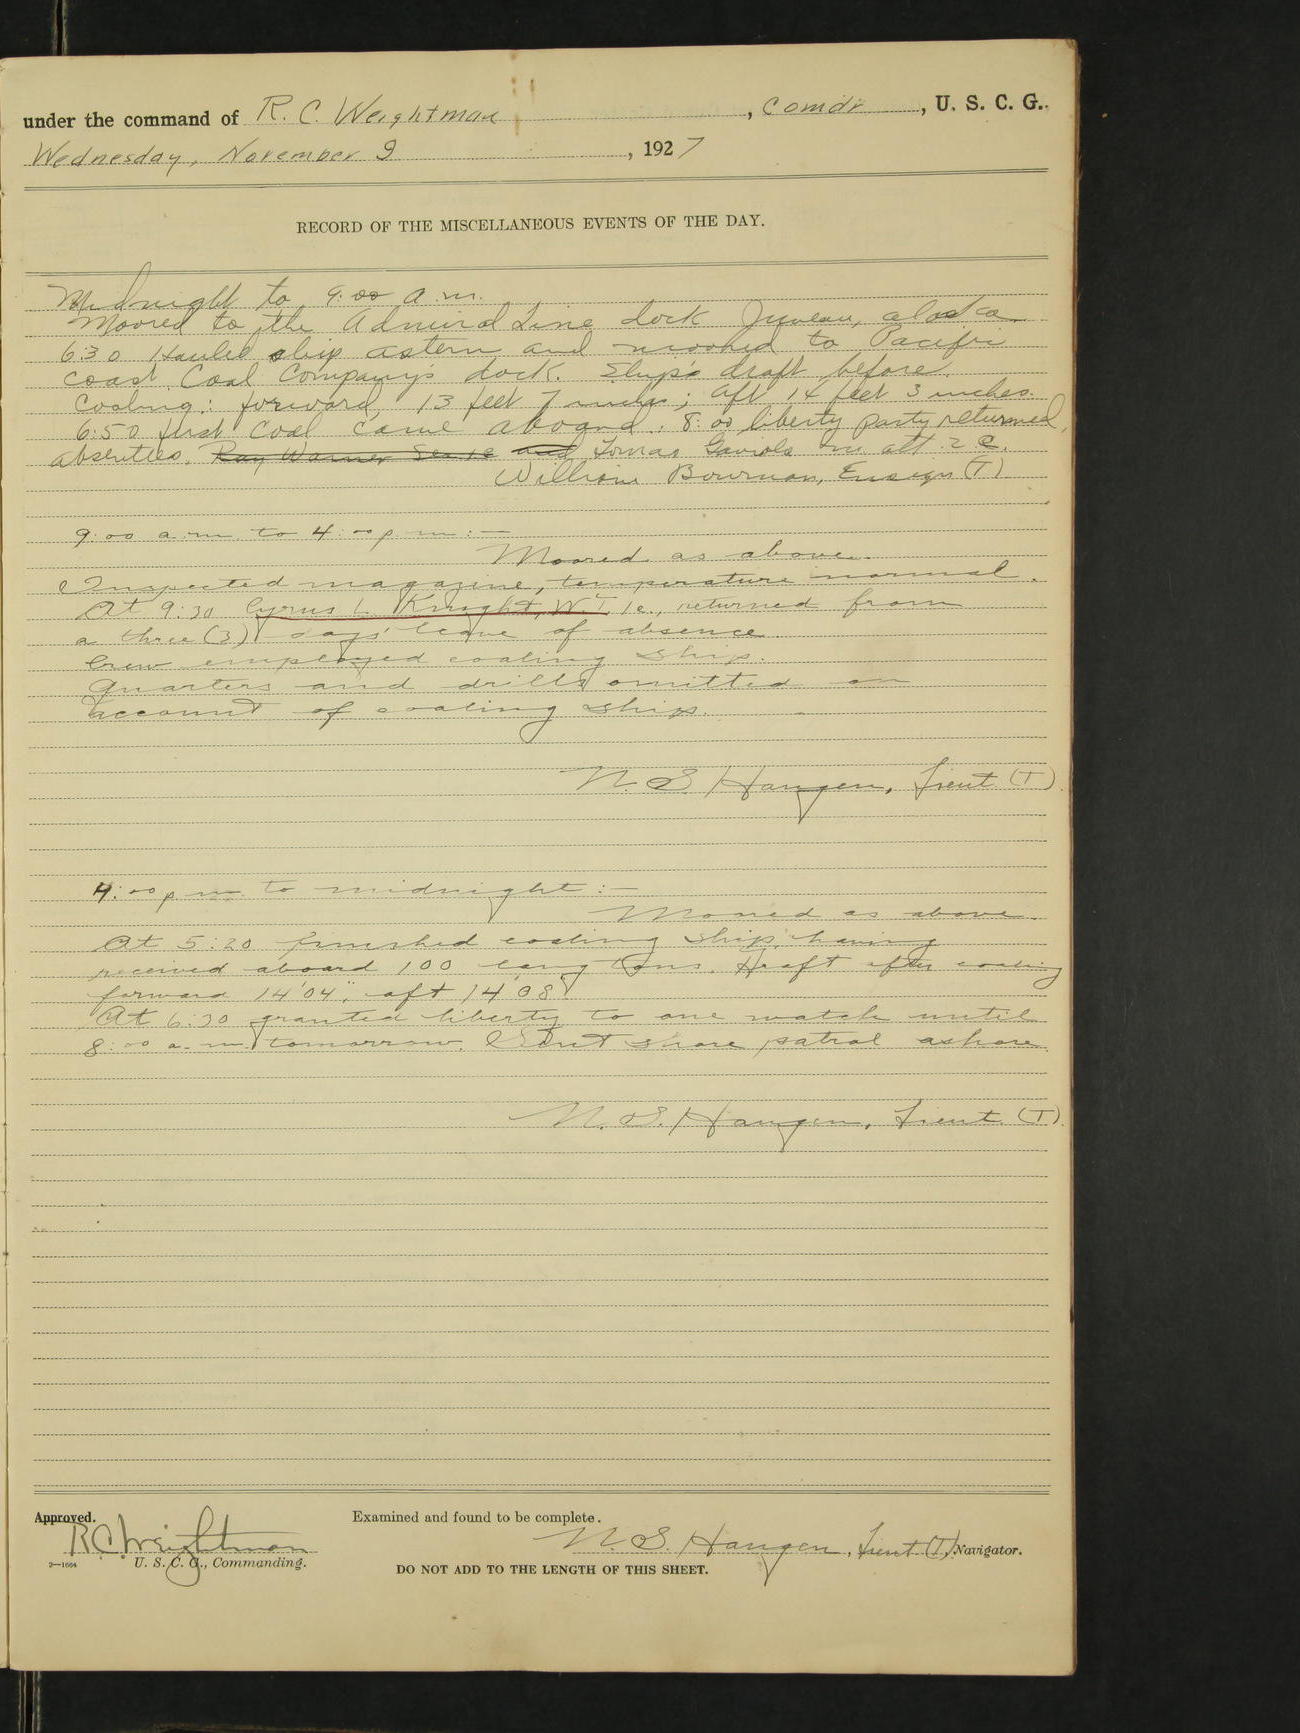 under the command of R. C. Weightman, Comdr, U. S. C. G.
Wednesday, November 9, 1927
RECORD OF THE MISCELLANEOUS EVENTS OF THE DAY.
Midnight to 9:00 a.m.
Moored to the Admiral Line dock Juneau, alaska
6:30 Hauled ship astern and moored to Pacific
coast Coal Company's dock. Ship's draft before
Coaling: forward, 13 feet 7 inches; aft 14 feet 3 inches.
6:50 first Coal came aboard. 8:00 liberty party returned,
absentees, Ray Warner and Tomas Gaviola m. att. 2c.
William Bowman, Ensign (T)
9:00 a.m. to 4:00 p.m.:—
Moored as above.
Inspected magazine, temperature normal.
At 9:30 Cyrus L. Knight, W.T. 1c., returned from
a three (3) days' leave of absence
Crew employed coaling ship.
Quarters and drills omitted on
account of coaling ship.
N. S. Haugen, Lieut. (T).
4:00 p.m. to midnight:—
Moored as above.
At 5:20 finished coaling ship, having
received aboard 100 long tons. Draft after coaling
forward 14'04", aft 14'08"
At 6:30 granted liberty to one watch until
8:00 a.m. tomorrow. Sent shore patrol ashore.
N. S. Haugen, Lieut. (T).
Approved.
R C Weightman
U. S. C. G., Commanding.
2—1664
Examined and found to be complete.
N. S. Haugen, Lieut (T) Navigator.
DO NOT ADD TO THE LENGTH OF THIS SHEET.